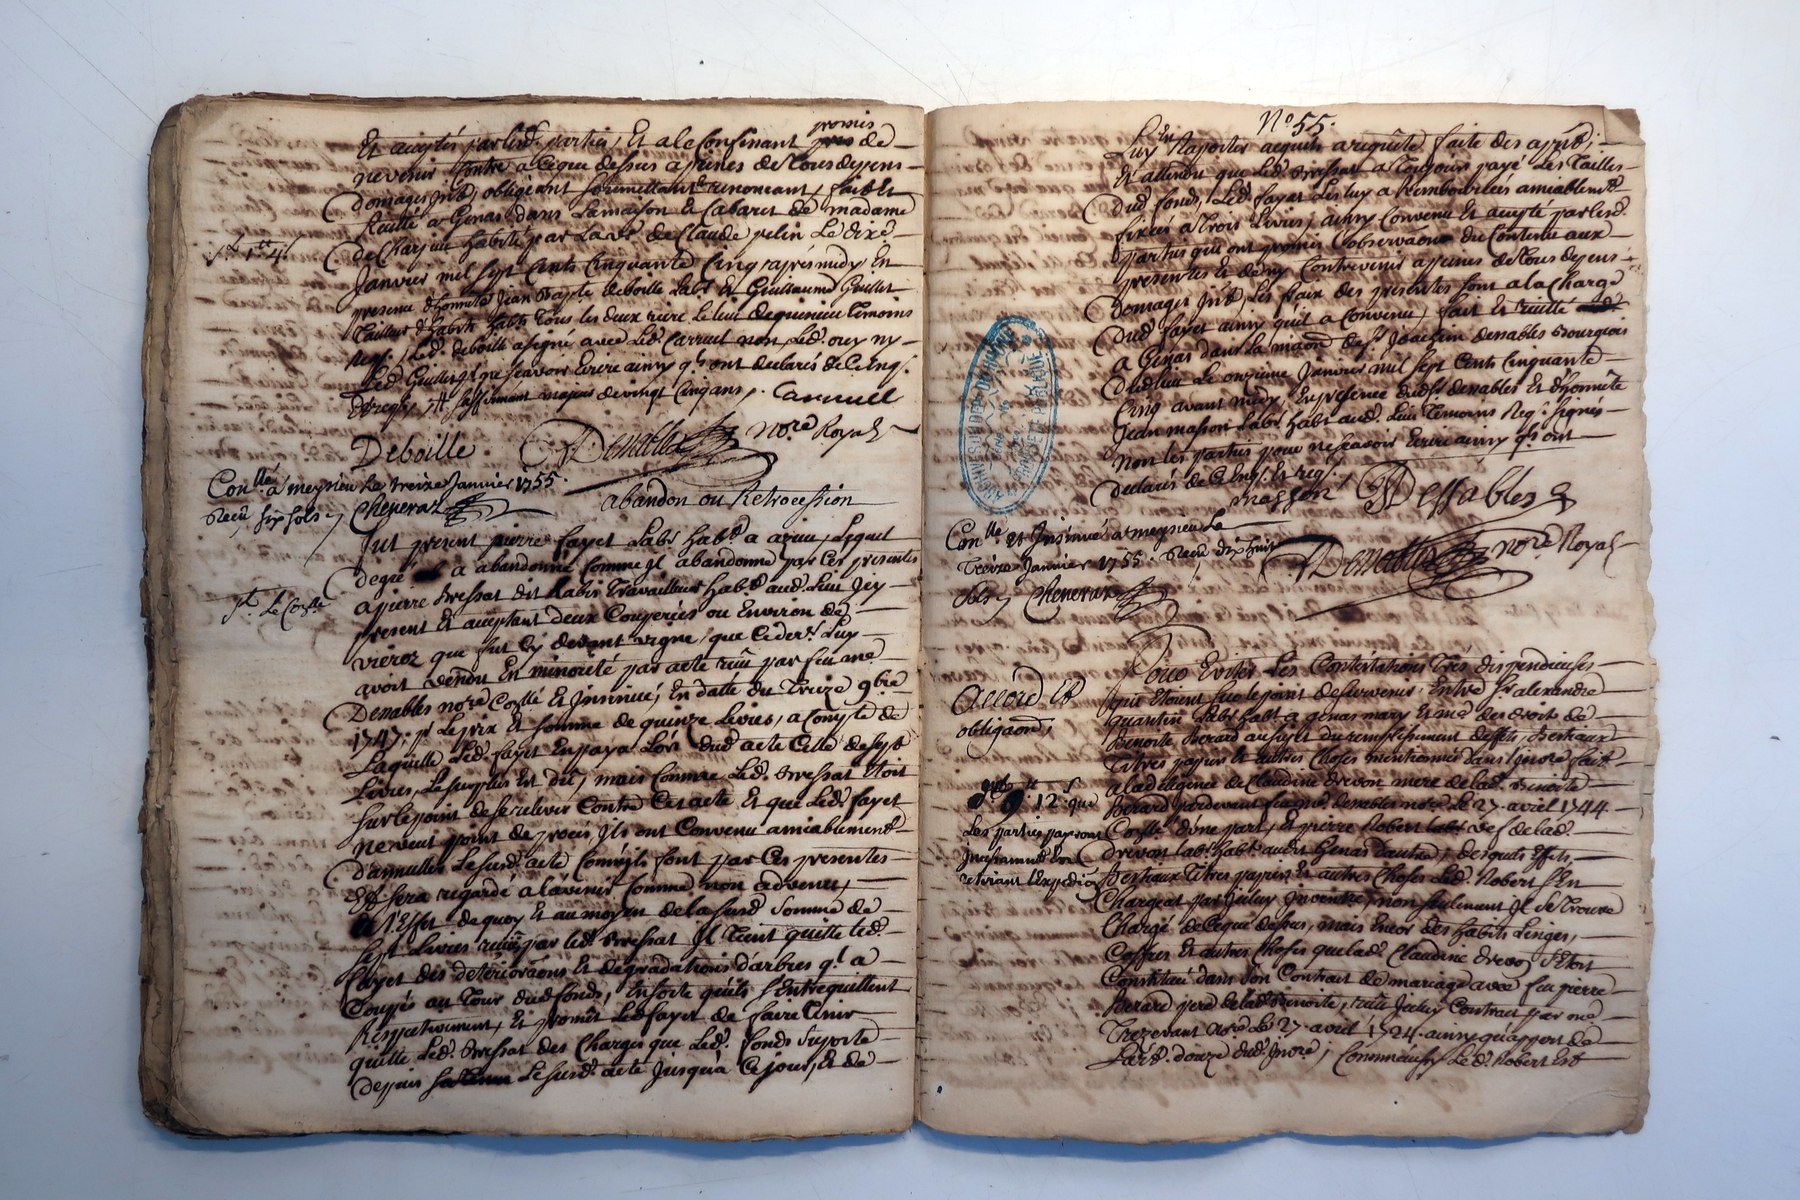 promis
Et acceptés par lesd. parties, Et a le Confinant pres de
ne venir Contre a Ceque dessus a peines de Tous depens
Domages Int. obligeant soumettant renonceant, fait et
Recitté a Genas dans la maison Et Cabaret de madame
de Charpin habité par La ve. de Claude pelin Le dixe
Janvier mil sept Cents Cinquante Cinq apres midy En
presence d'honnete Jean Bapte deboille Labr. Et Guillaume Guillet
Tailleur d'habits habts. Tous les deux riere le lieu de Temoins
Req. Led. deboille a signé avec Led. Carruel non Led. ny
Led. Guillet pr. ne scavoir Ecrire ainsy q'ils ont declarés de Ce Enq.
Et req. majeur de vingt Cinq ans. Carruel
Deboille Denables Nore Royal
Conllé a meyzieu Le treize Janvier 1755.
Recu six sols Cheneraz
abandon ou Retrocession
fut present pierre fayet Labr. habt. a azieu, Lequel
de gré a abandonné Comme il abandonne par Ces presentes
a pierre Bressat dit Travailleur habt. aud. Lieu Icy
present Et acceptant deux Couperées ou Environ de
que fut Cy devant vigne, que Ce dernr. Luy
avoit vendu En minorité par acte reçu par feu me.
Denables nore. Conllé Et Insinué, En datte du Treize 9bre
1747. pr. Le prix Et somme de quinze Livres, a Compte de
Laquelle Led. fayet En paya Lors dud. acte Celle de sept
Livres, Le surplus Est dû, mais Comme Led. Bressat Etoit
sur le point de se relever Contre Cet acte Et que Led. fayet
ne veut point de procés Ils ont Convenu amiablement
d'annuller Le surd. acte Comm'ils font par Ces presentes
Et sera regardé a l'avenir Comme non advenu,
a L'Effet de quoy Et au moyen de la surd. Somme de
sept Livres par led. Bressat Il Tient quitte led.
fayet des deteriorãons Et degradations d'arbres q'il a
Coupés au Tour dud. fonds, En sorte qu'ils S'Entrequittent
Respectivement, Et promet Led. fayet de faire Tenir
quitte Led. Bressat des Charges que Led. fonds Suporte
depuis Le surd. acte Jusqu'à Ce jour, Et de
No 55.
Luy En Raporter acquits a requête faite des a pnt;
Et attendu que Led. Bressat a Toujours payé Les Tailles
Dud. fonds, Led. fayet Les luy a Remboursées amiablemt.
fixées à Trois Livres, ainsy Convenu Et accepté par lesd.
parties qui ont promis l'observãon du Contenu aux
presentes Et de ny Contrevenir a peines de Tous depens
Domages Int., Les fraix des presentes sont a la Charge
Dud. fayet ainsy qu'il a Convenu, fait Et recitté
a Genas dans la maon de sr. Joachim denables Bourgeois
Dud. lieu Le onzieme Janvier mil sept Cents Cinquante
Cinq avant midy, En presence dud. sr. denables Et d'honnete
Jean masson Labr. habt. aud. lieu Temoins Req. Signés
non les parties pour ne scavoir Ecrire ainsy q'ils ont
Declarés de Ce Enq. Et req.
masson Dessables
Denables nore Royal
Conllé Et Insinué a meyzieu Le
Treize Janvier 1755. Recu dix huit
Sols Cheneraz
Accord Et
obligaõn
Pour Eviter Les Contestations Très dispendieuses
qui Etoient sur le point de survenir Entre sr. alexandre
quantin Labr. habt. a Genas mary Et me. des droits de
Benoite Berard au sujet du remplissement deffets, Bestiaux
Titres papiers Et autres Choses mentionnés dans l'Invre. fait
a la deligence de Claudine drevon mere de lad. Benoite
Berard pardevant feu me. denables nore. Le 27. avril 1744.
Conllé. d'une part, Et pierre Robert vef de lad.
Drevon Labr. habt. aud. Genas d'autre; desquels Effets,
Bestiaux Titres papiers Et autres Choses Led. Robert s'En
Chargeat par Iceluy Inventre, non seulement Il se Trouve
Chargé de Ceque dessus, mais Encor des habits Linges,
Coffres Et autres Choses que lad. Claudine drevon s'Etoit
Constitué dans son Contrat de mariage avec feu pierre
Berard pere de lad. Benoite, reçu Iceluy Contrat par me.
Trezevant Nre. Le 27. avril 1724. ainsy qu'appert de
l'art. douze dud. Invre; Comme aussy Led. Robert Est
12 s. que
Les parties payeront